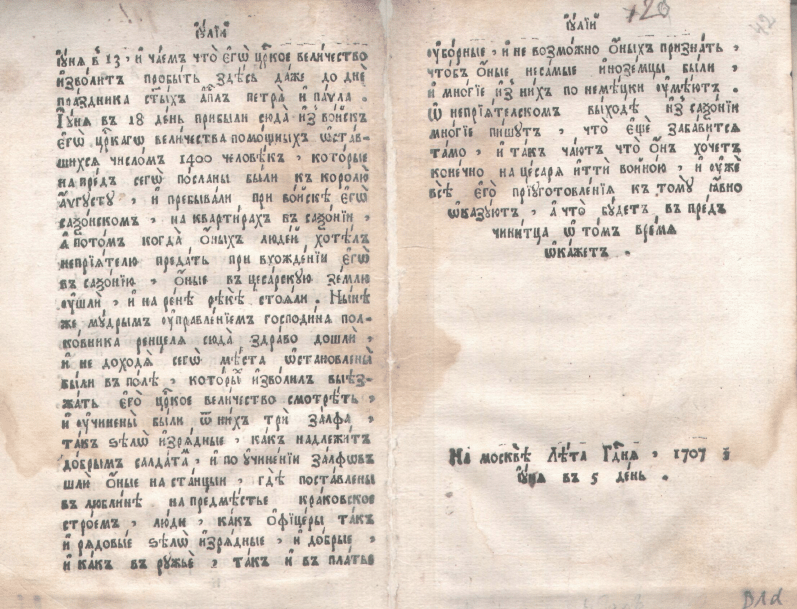 іѹ́лїѧ
іѹ́нѧ в҃ 13 , и҆ чаемъ что̀ є҆гѡ̀ цр҃кое вели́чество
и҆зво́литъ пробы́ть здѣ́сь да́же до днѐ
пра́здника ст҃ы́хъ а҆пⷭ҇лъ петра̀ и҆ па́ѵла .
Іѹ́нѧ въ 18 де́нь при́были сюда̀ и҆з̾ во́искъ
є҆гѡ̀ цр҃кагѡ вели́чества помощны́хъ ѡ҆ста́в-
шихсѧ число́мъ 1400 человѣ́къ , кото́рые
на пре́дъ сегѡ̀ по́сланы были къ королю̀
а҆́ѵгусту , и҆ пребыва́ли при во́искѣ є҆гѡ̀
саѯо́нскомъ , на кварти́рахъ въ саѯо́нїи ,
а҆ пото́мъ когда̀ ѻ҆́ныхъ люде́и хотѣ́лъ
непрїѧ́телю преда́ть при вхожде́нїи є҆гѡ̀
въ саѯо́нїю , ѻ҆́ные въ цеса́рскую зе́млю
ѹ҆шлѝ , и҆ на ре́нѣ рѣкѣ̀ стоѧ́ли . Ны́нѣ
же му́дрымъ ѹ҆правле́нїемъ господи́на пол-
ко́вника ре́нцелѧ сюда̀ здра́во дошлѝ ,
и҆ не доходѧ̀ сегѡ̀ мѣ́ста ѡ҆стано́влены
были въ по́лѣ , кото́рыхъ и҆зво́лилъ выѣз-
жа́ть є҆гѡ̀ цр҃кое вели́чество смотрѣ́ть ,
и҆ ѹ҆чинены̀ были ѿ ни́хъ трѝ за́лфа ,
та́къ ѕѣлѡ̀ и҆зрѧ́дные , ка́къ надлежи́тъ
до́брымъ салда́тⷨа , и҆ по ѹ҆чине́нїи за́лфовъ
шлѝ ѻ҆́ные на ста́нцыи , гдѣ̀ поста́влены
въ лю́блинѣ на предмѣ́стье кра́ковское
стро́емъ , лю́ди , ка́къ ѻ҆фїце́ры та́къ
и҆ рѧдовы́е ѕѣлѡ̀ и҆зрѧ́дные , и҆ до́брые ,
и҆ ка́къ въ ружьѐ , та́къ и҆ въ пла́тье
іѹ́лїи
120
42
ѹ҆бо́рные , и҆ не возмо́жно ѻ҆́ныхъ призна́ть ,
что́бъ ѻ҆́ные неса́мые и҆нозе́мцы были ,
и҆ мно́гие и҆з̾ ни́хъ по неме́цки ѹ҆мѣ́ютъ .
Ѡ҆ непрїѧ́телском вы́ходѣ и҆з̾ саѯо́нїи
мно́гїе пи́шутъ , что̀ є҆щѐ забави́тсѧ
та́мо , и҆ та́къ ча́ютъ что̀ ѻ҆́нъ хо́четъ
коне́чно на цеса́рѧ и҆ттѝ воино́ю , и҆ ѹ҆жѐ
всѣ̀ є҆го̀ прїуготовле́нїѧ къ тому̀ ꙗ҆́вно
ѡ҆ка́зуютъ , а҆ что̀ бу́детъ въ пре́дъ
чини́тца ѡ҆ то́мъ вре́мѧ
ѡ҆ка́жетъ .
На москвѣ̀ Лѣ́та Гдⷭ҇нѧ , 1707 :
іѹ́лѧ въ 5 де́нь .
D1d